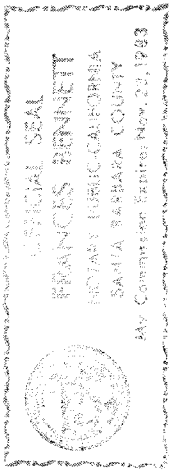 OFFICIAL SEAL
FRANCES BENNETT
NOTARY PUBLIC-CALIFORNIA
SANTA BARBARA COUNTY
My Commission Expires Nov. 29, 1983